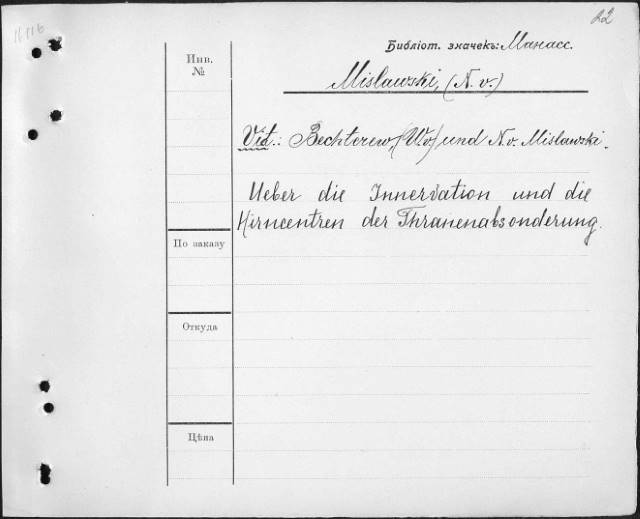 22
16116
Библіот. значекъ: Манасс.
Инв.
№
Mislawski, (N. v.)
Vid.: Bechterew, (W. v) und N. v. Mislawski.
Ueber die Innervation und die
Hirncentren der Thränenabsonderung.
По заказу
Откуда
Цѣна